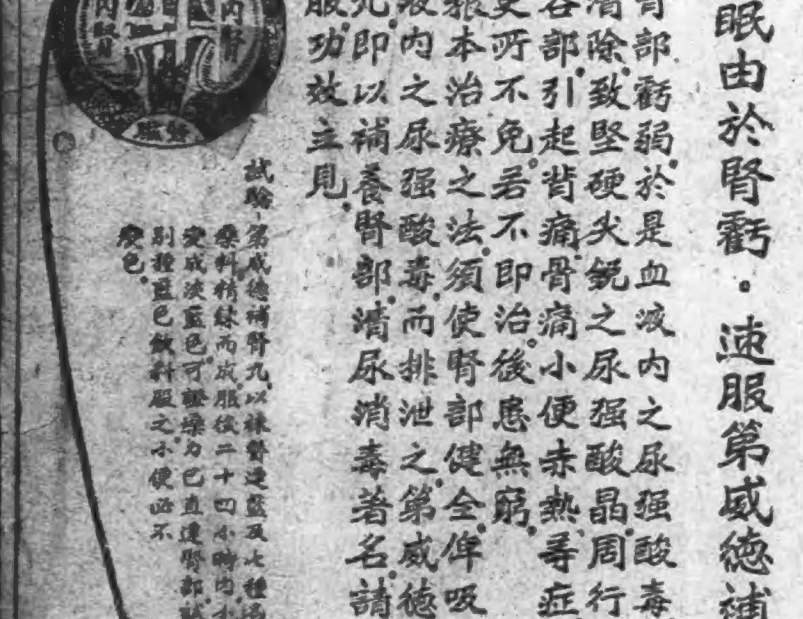 眠由於腎虧．速服第威德補
腎部虧弱。於是血液内之尿强酸毒
清除。致堅硬尖銳之尿强酸晶周行
各部。引起背痛骨痛小便赤熱。等症
更所不免。若不即治。後患無窮。
根本治療之法。須使腎部健全。俾吸
液内之尿强酸毒。而排泄之。第威德
丸。即以補養腎部。清尿消毒著名。請
服。功效立見。
内腎
内腎
試驗、第威德補腎丸。以
藥料精鍊而成。服後二十四小時内小
變成淡藍色。可證藥力已直達腎部。試
别種藍色飲料服之。小便必不
變色。